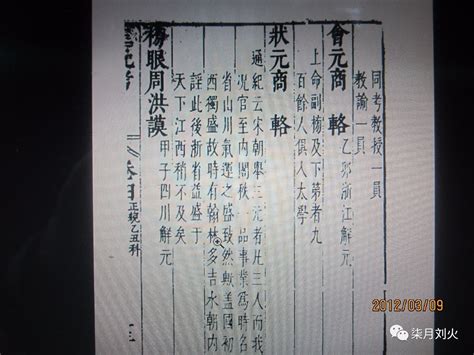 同考教授一員
教諭一員
會元商輅 乙卯浙江解元
上命副榜及下第者九
百餘人俱入太學
狀元商輅
通紀云宋朝舉三元者凡三人而我
況官至內閣秩一品事業為時名
省山川氣運之盛致然歟蓋國初
西獨盛故時有翰林多吉水朝內
謡此後浙省益盛于
天下江西稍不及矣
榜眼周洪謨 甲子四川解元
考 卷四 正統乙丑科
2012/03/09
柒月刘火